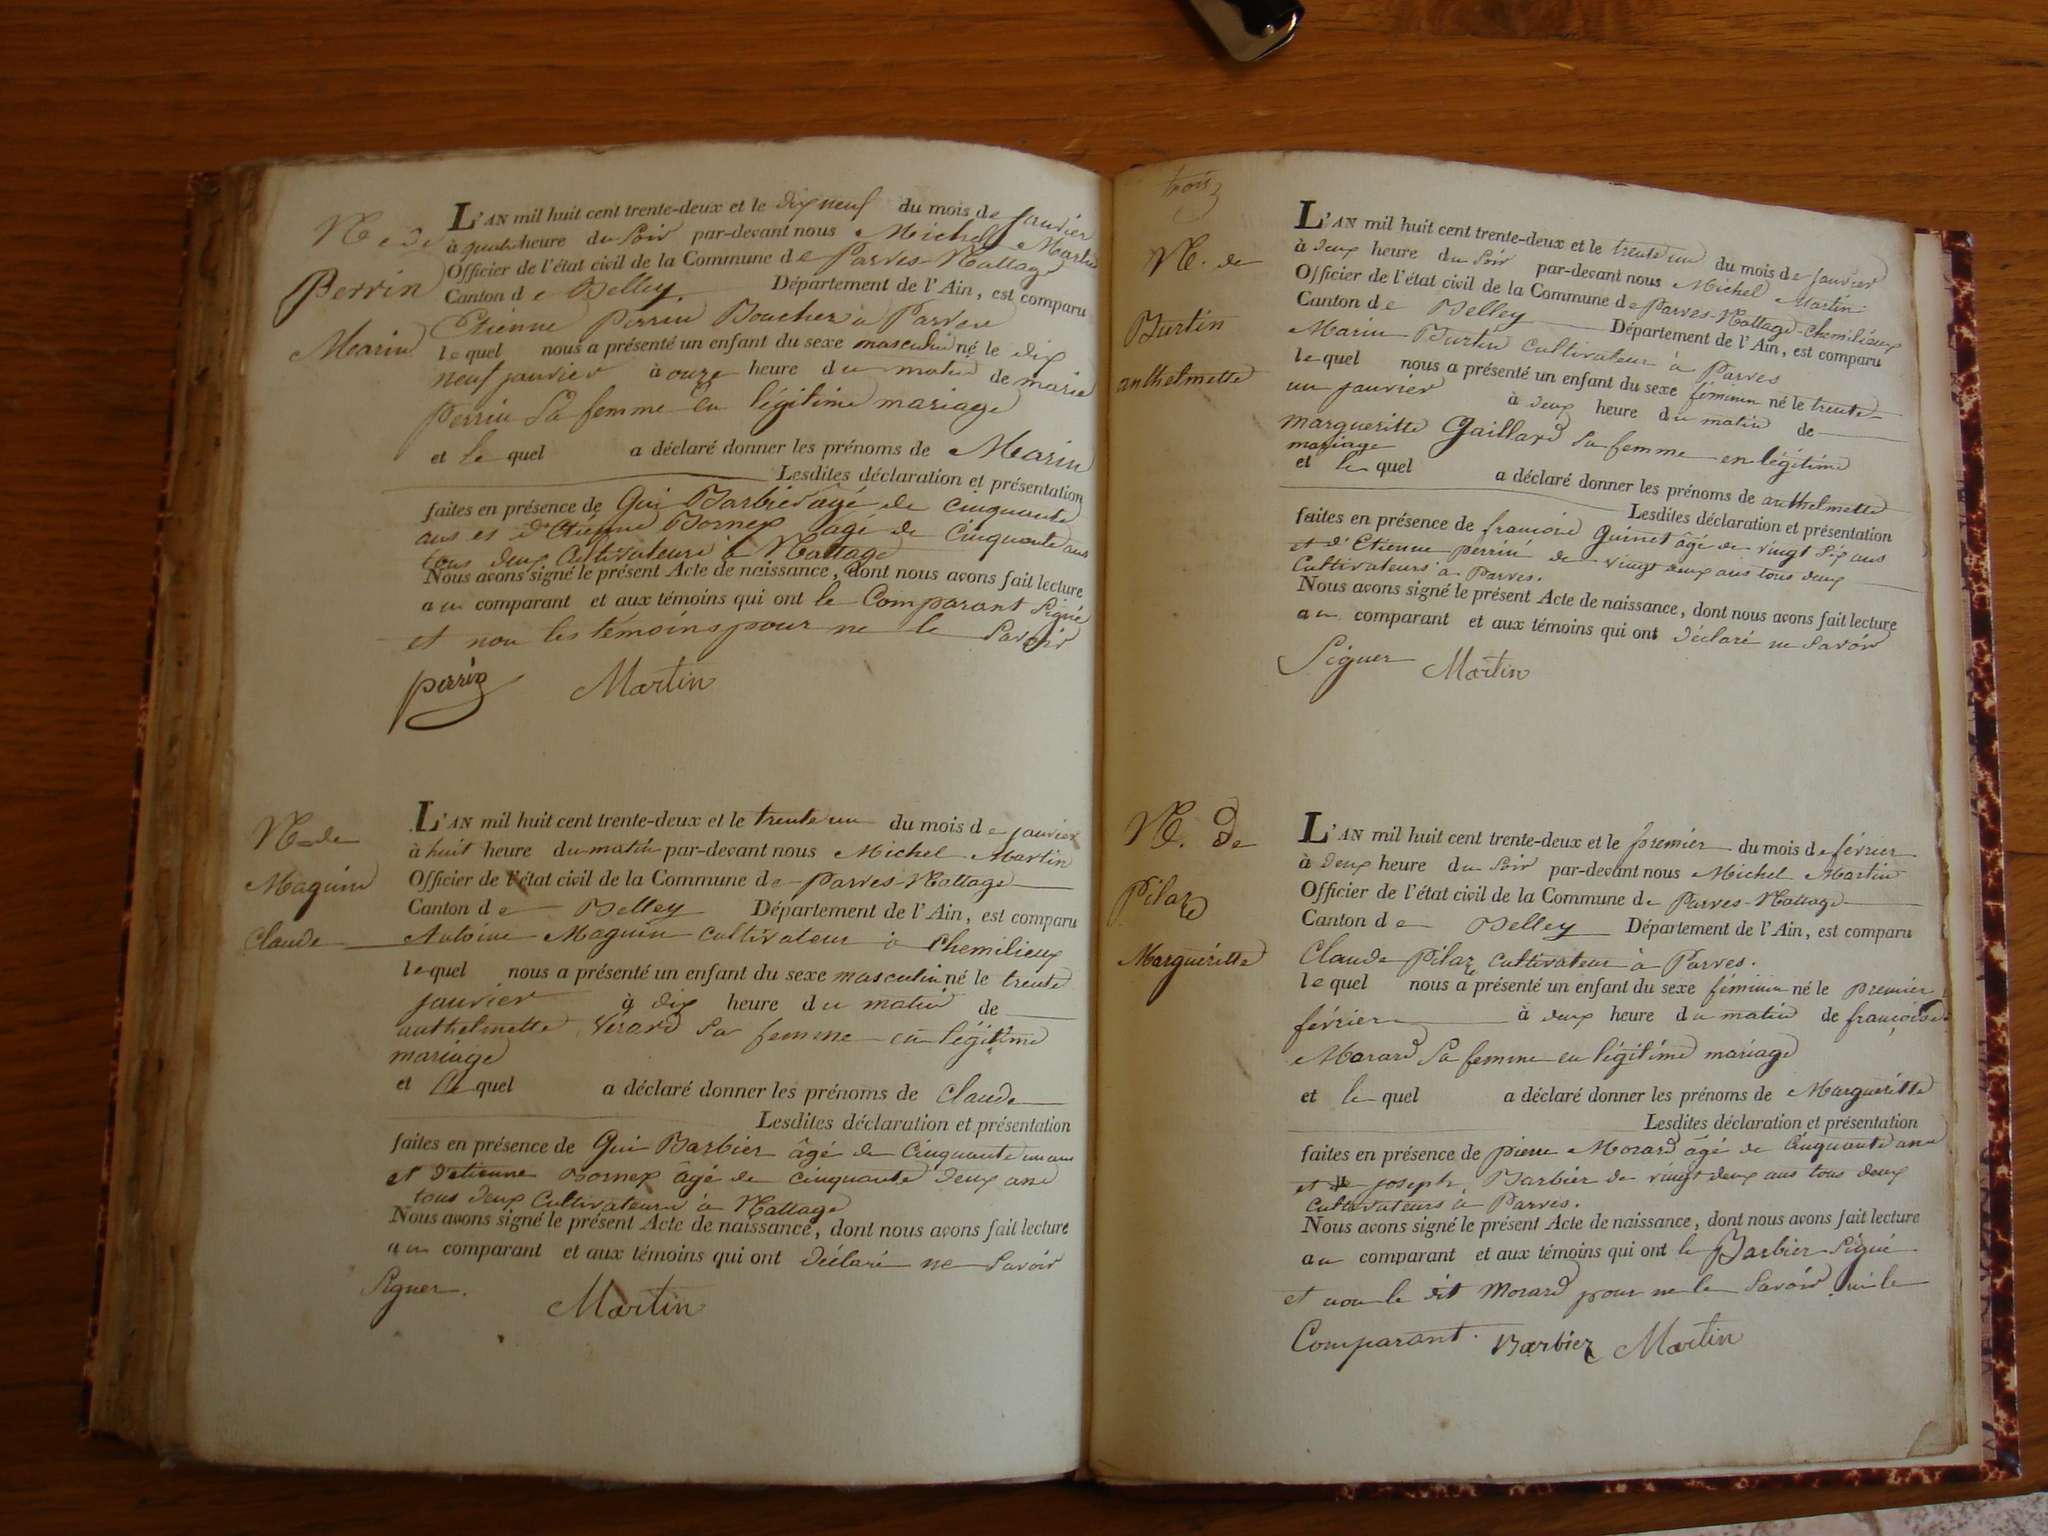 Ne de
Perrin
Marin
L'AN mil huit cent trente-deux et le dix neuf du mois de janvier
à quatre heure du Soir par-devant nous Michel Martin
Officier de l'état civil de la Commune de Parves-Nattage
Canton de Belley. Département de l'Ain, est comparu
Etienne Perrin Boucher à Parves
lequel nous a présenté un enfant du sexe masculin né le dix
neuf janvier à onze heure du matin de marie
Perrin Sa femme en légitime mariage
et le quel a déclaré donner les prénoms de Marin
Lesdites déclaration et présentation
faites en présence de Gui Barbier âgé de cinquante
ans et d'Etienne Bornex âgé de Cinquante ans
tous deux Cultivateurs à Nattage
Nous avons signé le présent Acte de naissance, dont nous avons fait lecture
au comparant et aux témoins qui ont le Comparant Signé
et non les témoins pour ne le Savoir
perrin Martin
Ne de
Maguin
Claude
L'AN mil huit cent trente-deux et le trente un du mois de janvier
à huit heure du matin par-devant nous Michel Martin
Officier de l'état civil de la Commune de Parves-Nattage
Canton de Belley Département de l'Ain, est comparu
Antoine Maguin cultivateur à Chemilieux
lequel nous a présenté un enfant du sexe masculin né le trente
janvier à dix heure du matin de
anthelmette Vérard Sa femme en légitime
mariage
et le quel a déclaré donner les prénoms de Claude
Lesdites déclaration et présentation
faites en présence de Gui Barbier âgé de Cinquante un ans
et d'etienne Bornex âgé de cinquante deux ans
tous deux Cultivateurs à Nattage
Nous avons signé le présent Acte de naissance, dont nous avons fait lecture
au comparant et aux témoins qui ont Déclaré ne Savoir
Signer.
Martin
trois
Ne. de
Burtin
anthelmette
L'AN mil huit cent trente-deux et le trente un du mois de janvier
à deux heure du Soir par-devant nous Michel Martin
Officier de l'état civil de la Commune de Parves-Nattage-Chemilieux
Canton de Belley Département de l'Ain, est comparu
Marin Burtin cultivateur à Parves
lequel nous a présenté un enfant du sexe féminin né le trente
un janvier à deux heure du matin de
margueritte Gaillard Sa femme en légitime
mariage
et le quel a déclaré donner les prénoms de anthelmette
Lesdites déclaration et présentation
faites en présence de francois Guinet âgé de vingt Six ans
et d'Etienne perrin de vingt deux ans tous deux
Cultivateurs à Parves.
Nous avons signé le présent Acte de naissance, dont nous avons fait lecture
au comparant et aux témoins qui ont déclaré ne Savoir
Signer Martin
Ne. De
Pilaz
Margueritte
L'AN mil huit cent trente-deux et le premier du mois de février
à deux heure du Soir par-devant nous Michel Martin
Officier de l'état civil de la Commune de Parves-Nattage
Canton de Belley Département de l'Ain, est comparu
Claude Pilaz cultivateur à Parves.
lequel nous a présenté un enfant du sexe féminin né le premier
février à deux heure du matin de françoise
Morard Sa femme en légitime mariage
et le quel a déclaré donner les prénoms de Margueritte
Lesdites déclaration et présentation
faites en présence de pierre Morard âgé de Cinquante ans
et de joseph Barbier de vingt deux ans tous deux
Cultivateurs à Parves.
Nous avons signé le présent Acte de naissance, dont nous avons fait lecture
au comparant et aux témoins qui ont le Barbier Signé
et non le dit Morard pour ne le Savoir ni le
Comparant. Barbier Martin